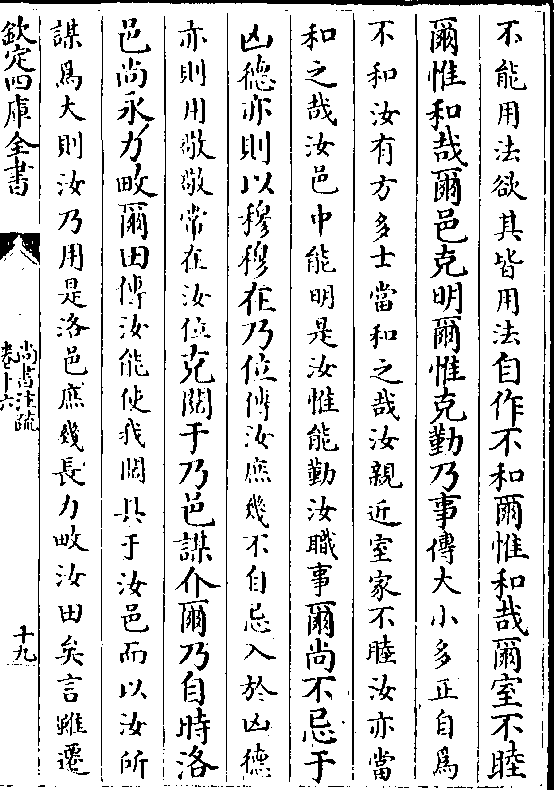 不能用法欲其皆用法自作不和爾惟和哉爾室不睦
爾惟和哉爾邑克明爾惟克勤乃事傳大小多正自為
不和汝有方多士當和之哉汝親近室家不睦汝亦當
和之哉汝邑中能明是汝惟能勤汝職事爾尚不忌于
凶德亦則以穆穆在乃位傳汝庶幾不自忌入於凶德
亦則用敬敬常在汝位克閱于乃邑謀介爾乃自時洛
邑尚永力畋爾田傳汝能使我閱具于汝邑而以汝所
謀為大則汝乃用是洛邑庶幾長力畋汝田矣言雖遷
欽定四庫全書
尚書注疏
卷十六
十九